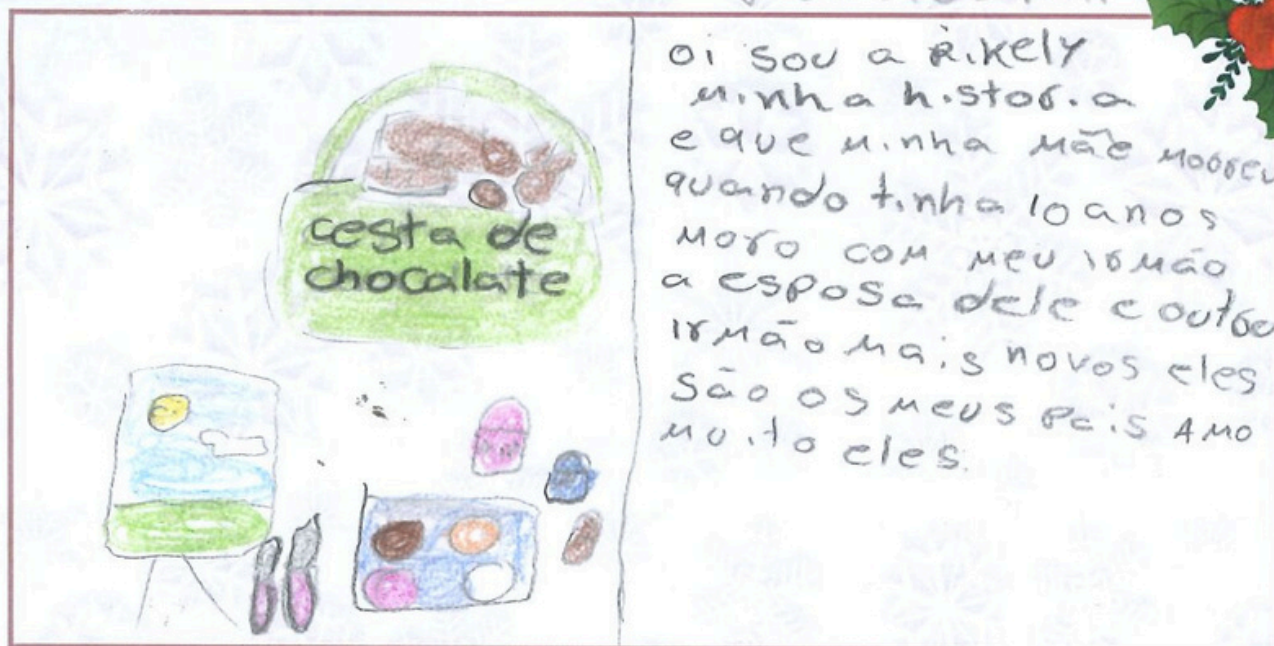 cesta de
chocalate
oi sou a Rikely
minha historia
e que minha mãe morreu
quando tinha 10 anos
moro com meu irmão
a esposa dele e outro
irmão mais novos eles
são os meus pais Amo
muito eles.